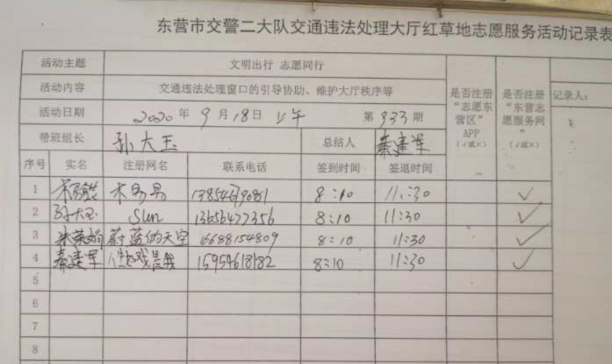 东营市交警二大队交通违法处理大厅红草地志愿服务活动记录表
活动主题 文明出行 志愿同行
活动内容 交通违法处理窗口的引导协助、维护大厅秩序等
活动日期 2020年9月18日上午 第933期
带班组长 孙大玉 总结人 秦建军
是否注册“志愿东营区”APP（√或×）
是否注册“东营志愿服务网”（√或×）
记录人：
序号 实名 注册网名 联系电话 签到时间 签退时间
1 木易易 8:10 11:30 √
2 孙大玉 Sun 13656477356 8:10 11:30 √
3 蔚蓝的天空 8:10 11:30 √
4 秦建军 15954618182 8:10 11:30 √
5
6
7
8